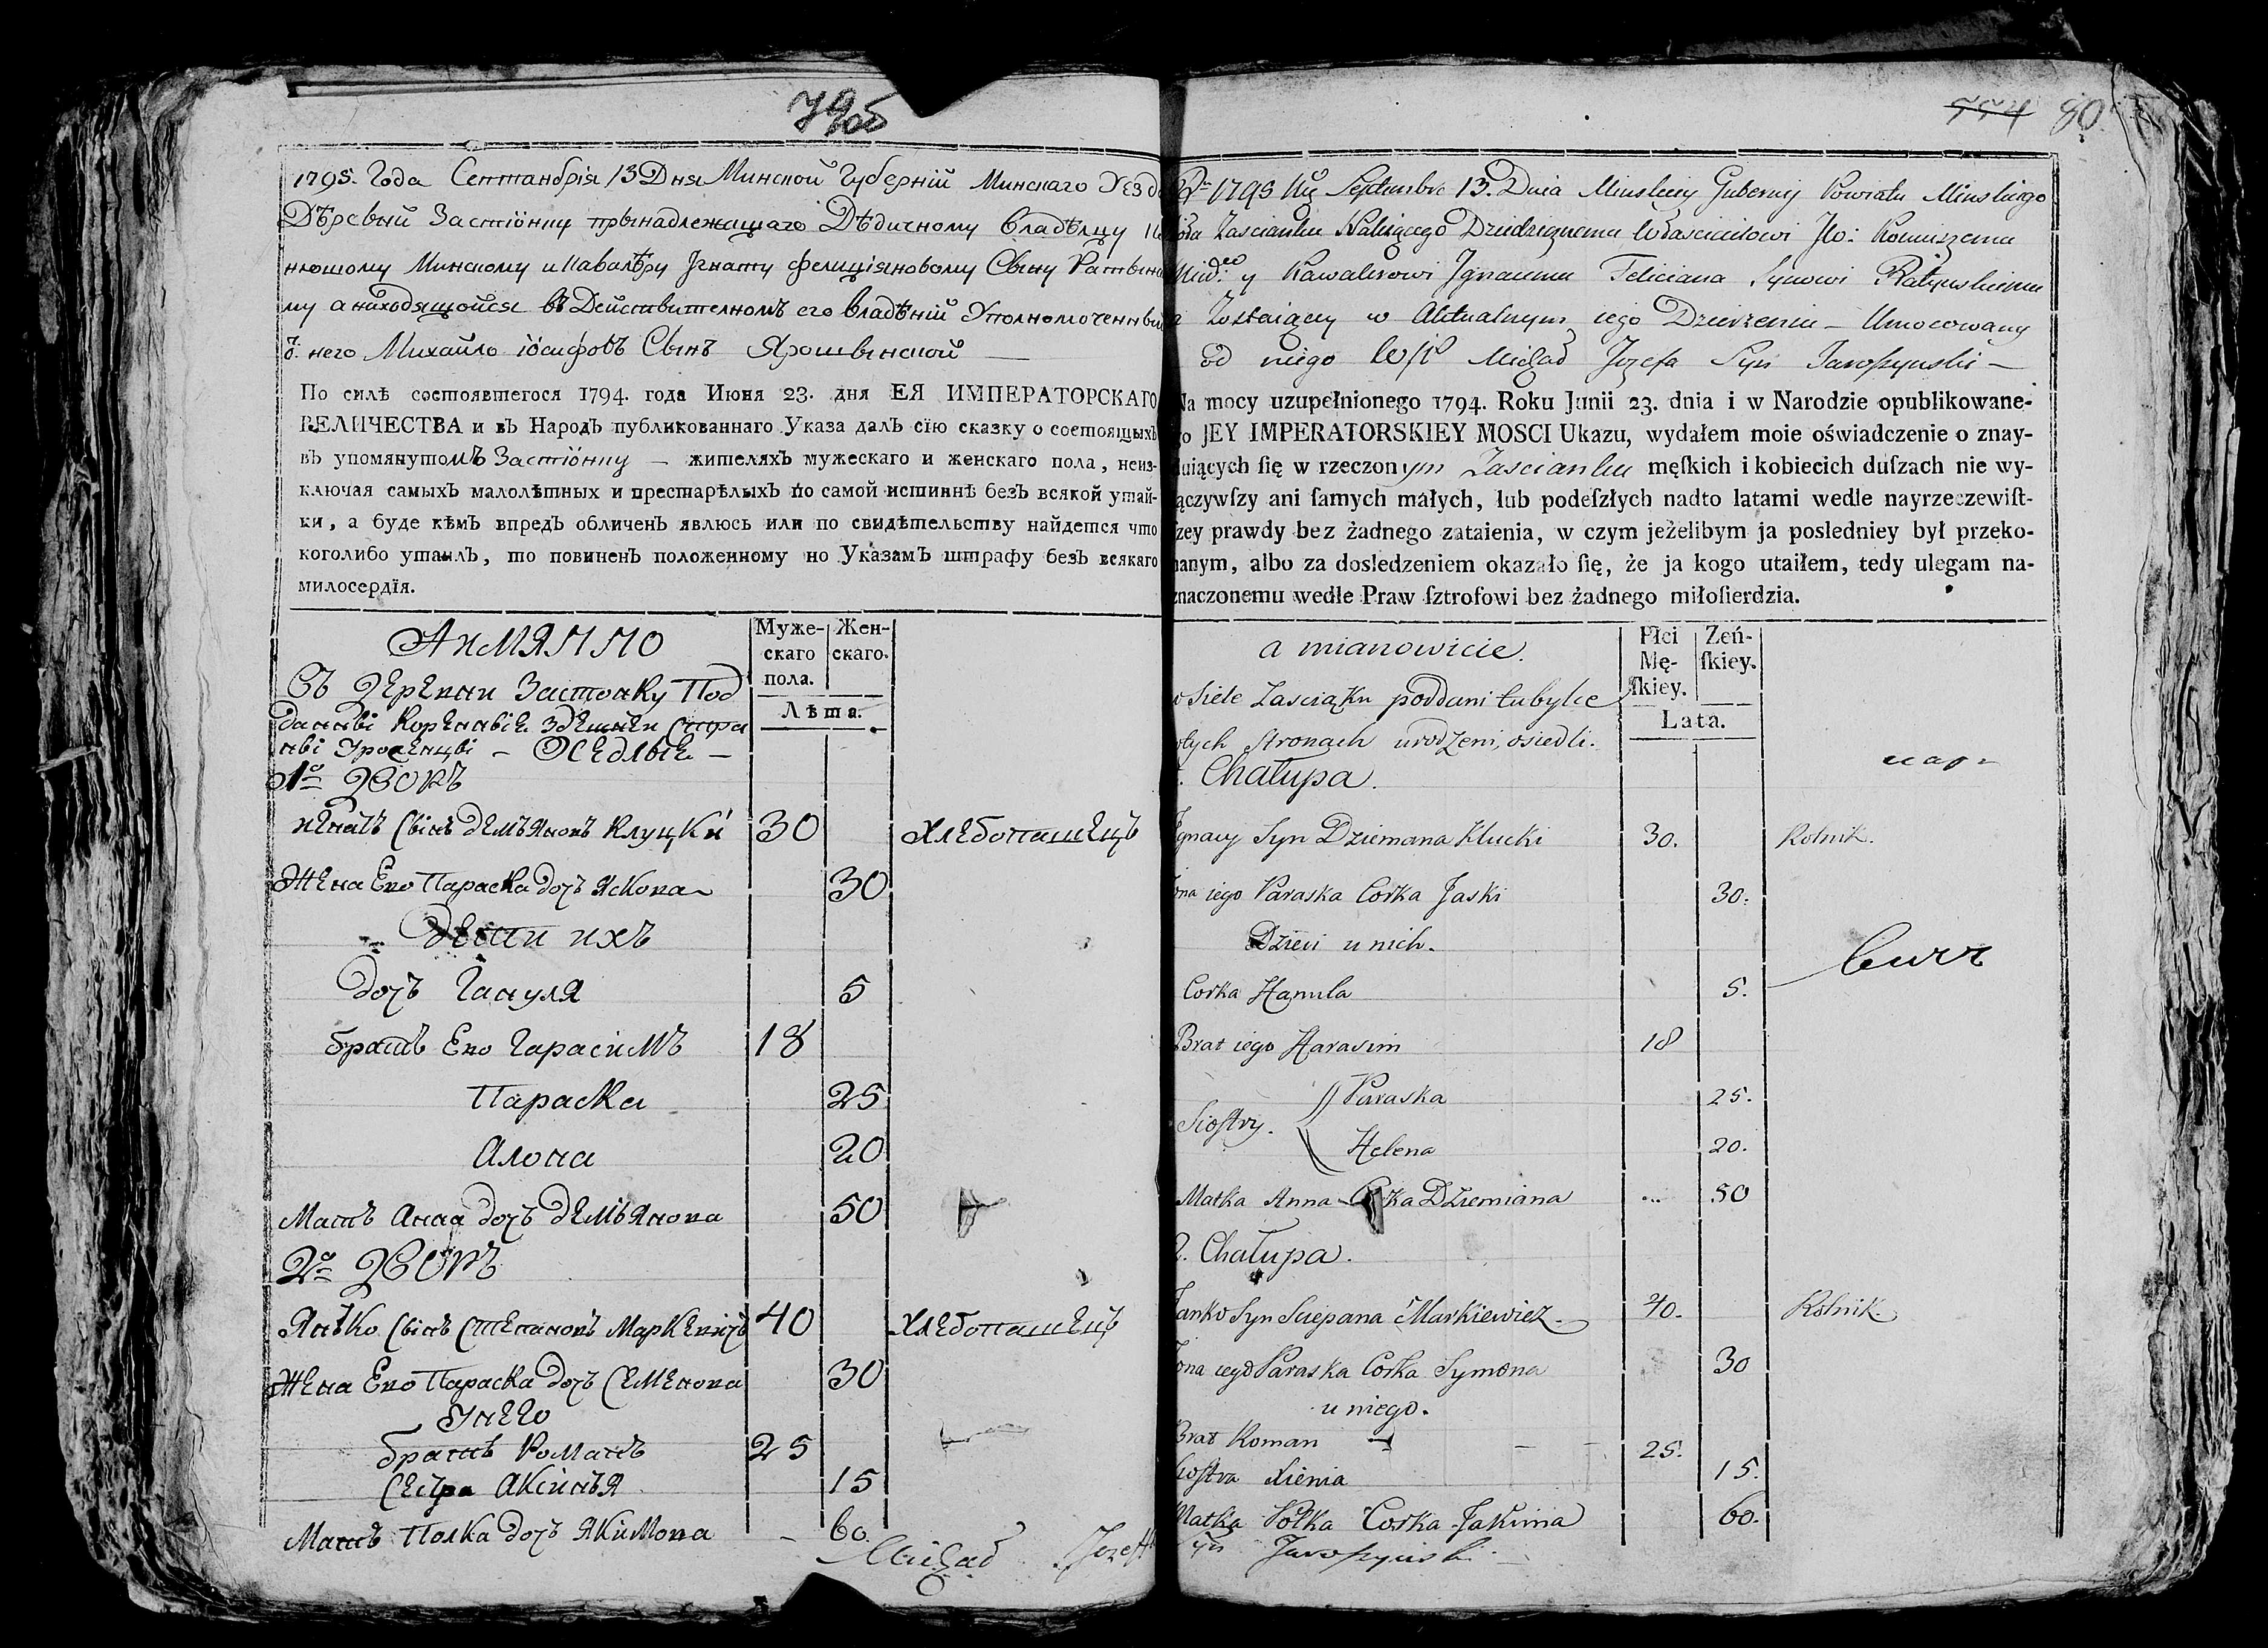 79об
1795. Года Септанбрія 13 Дня Минской Губерніи Минскаго Уезда
Дѣревни Застіонку прынадлежащаго Дѣдичному Владѣлцу
Минскому и Кавалѣру Игнату Фелиціяновому Сыну
му а находящойся въ Действителномъ его Владѣніи Уполномоченный
от него Михайло Іосифовъ Сынъ Ярошынской —
По силѣ состоявшегося 1794. года Июня 23. дня ЕЯ ИМПЕРАТОРСКАГО
ВЕЛИЧЕСТВА и въ Народъ публикованнаго Указа далъ сїю сказку о состоящыхъ
въ упомянутомъ Застіонку — жителяхъ мужескаго и женскаго пола, неиз-
ключая самыхъ малолѣтныхъ и престарѣлыхъ по самой истиннѣ безъ всякой утай-
ки, а буде кѣмъ впредъ обличенъ явлюсь или по свидѣтельству найдется что
коголибо утаилъ, то повиненъ положенному но Указамъ штрафу безъ всякаго
милосердїя.
Муже-
скаго
пола.
Жен-
скаго.
Лѣта.
Съ деревни Застонку Под
данныі коренныіе здешнеи стра
ныі уроженцыі — Оседлые —
1о Дворъ
Сынъ Демъяновъ Клуцкй 30 Хлебопашецъ
Жена Его Параска дочъ Яскова 30
дети ихъ
дочъ Гануля 5
братъ Его Гарасимъ 18
Параска 25
Алона 20
Матъ Анна дочъ Демъянова 50
2о Дворъ
Янъко Сынъ Степановъ Маркевичъ 40 Хлебопашецъ
Жена Его Параска дочъ Семенова 30
У него
братъ Романъ 25
Сестра Аксинъя 15
Матъ Полка дочъ Якимова — 60.
Michał Jozefa
774 80
1795 Septembra 13. Dnia Minskiey Gubernij Powiatu Minskiego
Zascianku Należącego Dziedzicznemu Własciciełowi Jlo: Komiszema
y Kawalerowi Jgnacemu Feliciana Synowi Ratynskiemu
Zostaiącey w Aktualnym iego Dzierżeniu — Umocowany
od niego Michał Jozefa Syn Jaroszynski —
Na mocy uzupełnionego 1794. Roku Junii 23. dnia i w Narodzie opublikowane-
go JEY IMPERATORSKIEY MOSCI Ukazu, wydałem moie oświadczenie o znay-
duiących ſię w rzeczonym Zascianku męſkich i kobiecich duſzach nie wy-
łączywſzy ani ſamych małych, lub podeſzłych nadto latami wedle nayrzeczewiſt-
ſzey prawdy bez żadnego zataienia, w czym jeżelibym ja posledniey był przeko-
nanym, albo za dosledzeniem okazało ſię, że ja kogo utaiłem, tedy ulegam na-
znaczonemu wedle Praw ſztrofowi bez żadnego miłoſierdzia.
a mianowicie.
Płci
Mę-
ſkiey.
Zeń-
ſkiey.
Lata.
w Siele Zasciąku poddani tubylce
Stronach urodzeni, osiedli.
1. Chałupa.
Jgnacy Syn Dziemana Klucki 30. Rolnik.
Żona iego Paraska Corka Jaski 30.
Dzieci u nich.
Corka Hanula 5.
Brat iego Harasim 18
Siostry. Paraska 25.
Helena 20.
Matka Anna Corka Dziemiana ... 50
2. Chałupa.
Janko Syn Sciepana Markiewicz. 40. Rolnik.
Żona iego Paraska Corka Symona 30
u niego.
Brat Roman — — - 25.
Siostra Xienia 15.
Matka Połka Corka Jakima 60.
Syn Jaroszynski.